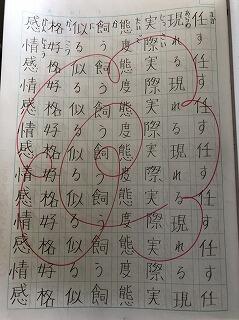 任す任す任す任す任す任す任
現れる現れる現れる現れる現
実際実際実際実際実際実際実
態度態度態度態度態度態度態
飼う飼う飼う飼う飼う飼う飼
似る似る似る似る似る似る似
格好格好格好格好格好格好格
感情感情感情感情感情感情感